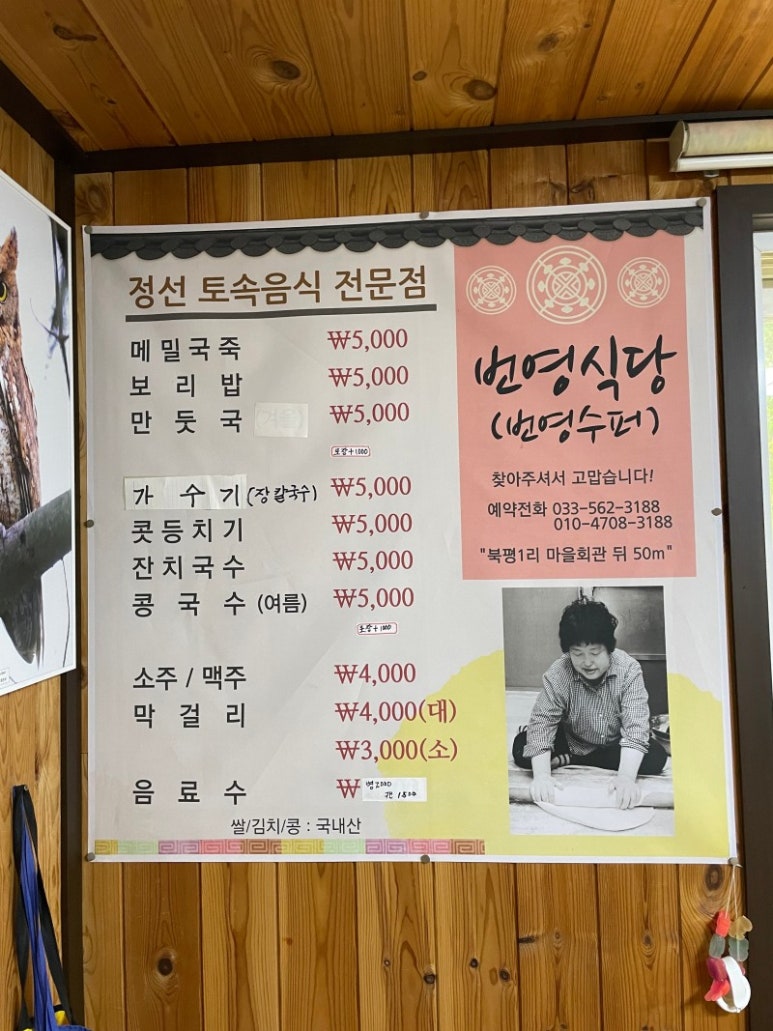 정선 토속음식 전문점
메밀국죽 ₩5,000
보리밥 ₩5,000
만둣국 (겨울) ₩5,000
포장+1000
가수기 (장칼국수) ₩5,000
콧등치기 ₩5,000
잔치국수 ₩5,000
콩국수 (여름) ₩5,000
포장+1000
소주 / 맥주 ₩4,000
막걸리 ₩4,000(대)
₩3,000(소)
음료수 ₩ 병2000
캔 1500
쌀/김치/콩 : 국내산
번영식당
(번영수퍼)
찾아주셔서 고맙습니다!
예약전화 033-562-3188
010-4708-3188
"북평1리 마을회관 뒤 50m"